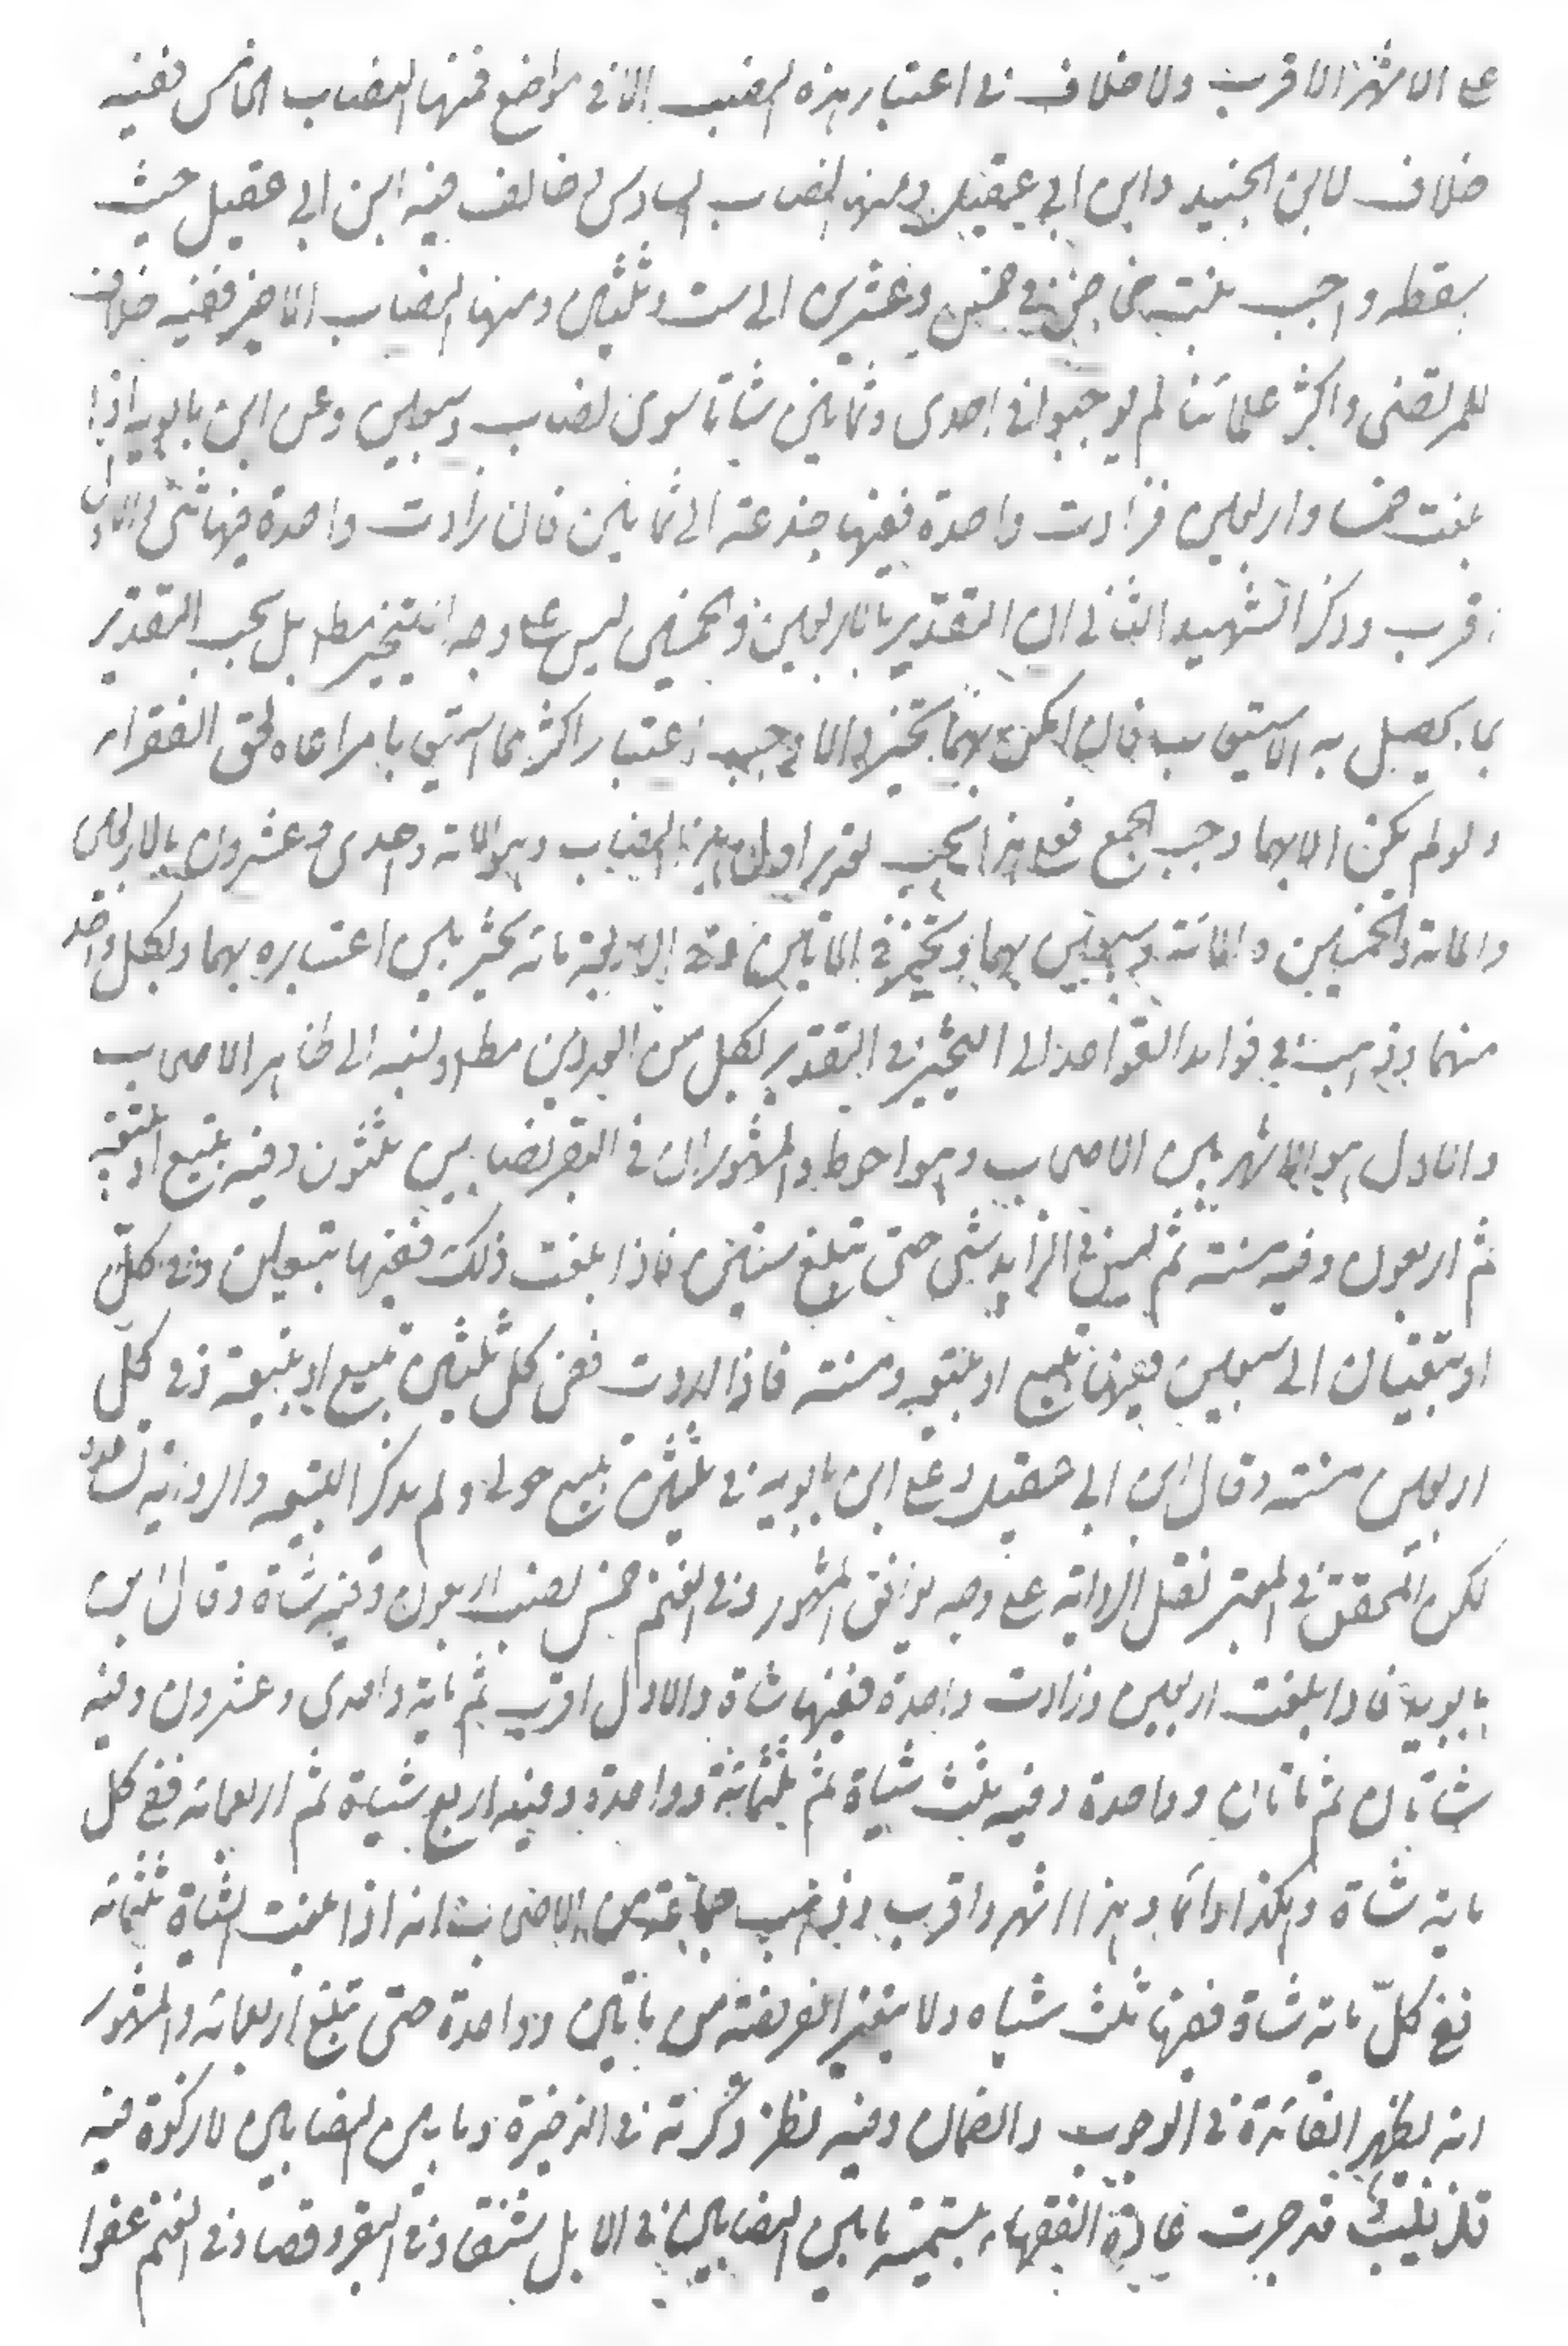 على الاشهر الاقرب ولا خلاف فى اعتبار هذه النصب الا فى مواضع فمنها النصاب الخامس ففيه
خلاف لابن الجنيد وابن ابي عقيل ومنها النصاب السادس خالف فيه ابن ابى عقيل حيث
يسقطه واجب بنت مخاض فى خمس وعشرين الى ست وثلثين ومنها النصاب الاخير ففيه خلاف
للمرتضى واكثر علمائنا لم يوجبوا فى احدى وثمانين شيئا سوى نصاب وسبعين وعن ابن بابويه اذا
بلغت خمسا واربعين فزادت واحدة ففيها جذعة الى ثمانين فان زادت واحدة ففيها ثنى والاول
اقرب وذكر الشهيد الثانى ان التقدير بالاربعين والخمسين ليس على وجه التخيير مطلقا بل يجب التقدير
بما يحصل به الاستيعاب فان امكن بهما تخير والا وجب اعتبار اكثرهما استيعابا مراعاه لحق الفقراء
ولو لم يكن الا بهما وجب الجمع فعلى هذا يجب تقدير اول هذا النصاب وهو المائة واحدى وعشرون بالاربعين
والمائة والخمسين والمائة وسبعين بهما ويتخير فى المأتين وفى الاربعمائة يتخير بين اعتباره بهما وبكل واحد
منهما وذهب فى فوائد القواعد الى التخيير فى التقدير بكل من العددين مطلقا ونسبه الى ظاهر الاصحاب
والاول هو الاشهر بين الاصحاب وهو احوط والمشهور ان فى البقر نصابين ثلثون وفيه تبيع او تبيعة
ثم اربعون وفيه مسنة ثم ليس فى الزايد شى حتى تبلغ ستين فاذا بلغت ذلك ففيها تبيعان وفى كل
او تبيعتان الى سبعين ففيها تبيع او تبيعة ومسنة فاذا زادت ففى كل ثلثين تبيع او تبيعة وفى كل
اربعين مسنة وقال ابن ابى عقيل وعلى ابن بابويه فى ثلثين تبيع حولى ولم يذكر التبيعة والرواية تساعده
لكن المحقق فى المعتبر نقل الرواية على وجه يوافق المشهور وفى الغنم خمس نصب اربعون وفيه شاة وقال ابن
بابويه فاذا بلغت اربعين وزادت واحدة ففيها شاة والاول اقرب ثم ماية واحدى وعشرون وفيه
شاتان ثم ماتان وواحدة وفيه ثلث شياة ثم ثلثمائة وواحدة وفيه اربع شياة ثم اربعمائة ففى كل
ماية شاة وهكذا دائما وهذا اشهر واقرب وذهب جماعة من الاصحاب انه اذا بلغت الشاة ثلثمائة
ففى كلّ ماية شاة ففيها ثلث شياه ولا يتغير الفريضة من ماتين وواحدة حتى تبلغ اربعمائة والمشهور
انه يظهر الفائدة فى الوجوب والضمان وفيه نظر ذكرته فى الذخيرة وما بين النصابين لا زكوة فيه
قد جرت عادة الفقهاء بتسمية ما بين النصابين فى الابل شنقا وفى البقر وقصا وفى الغنم عفوا